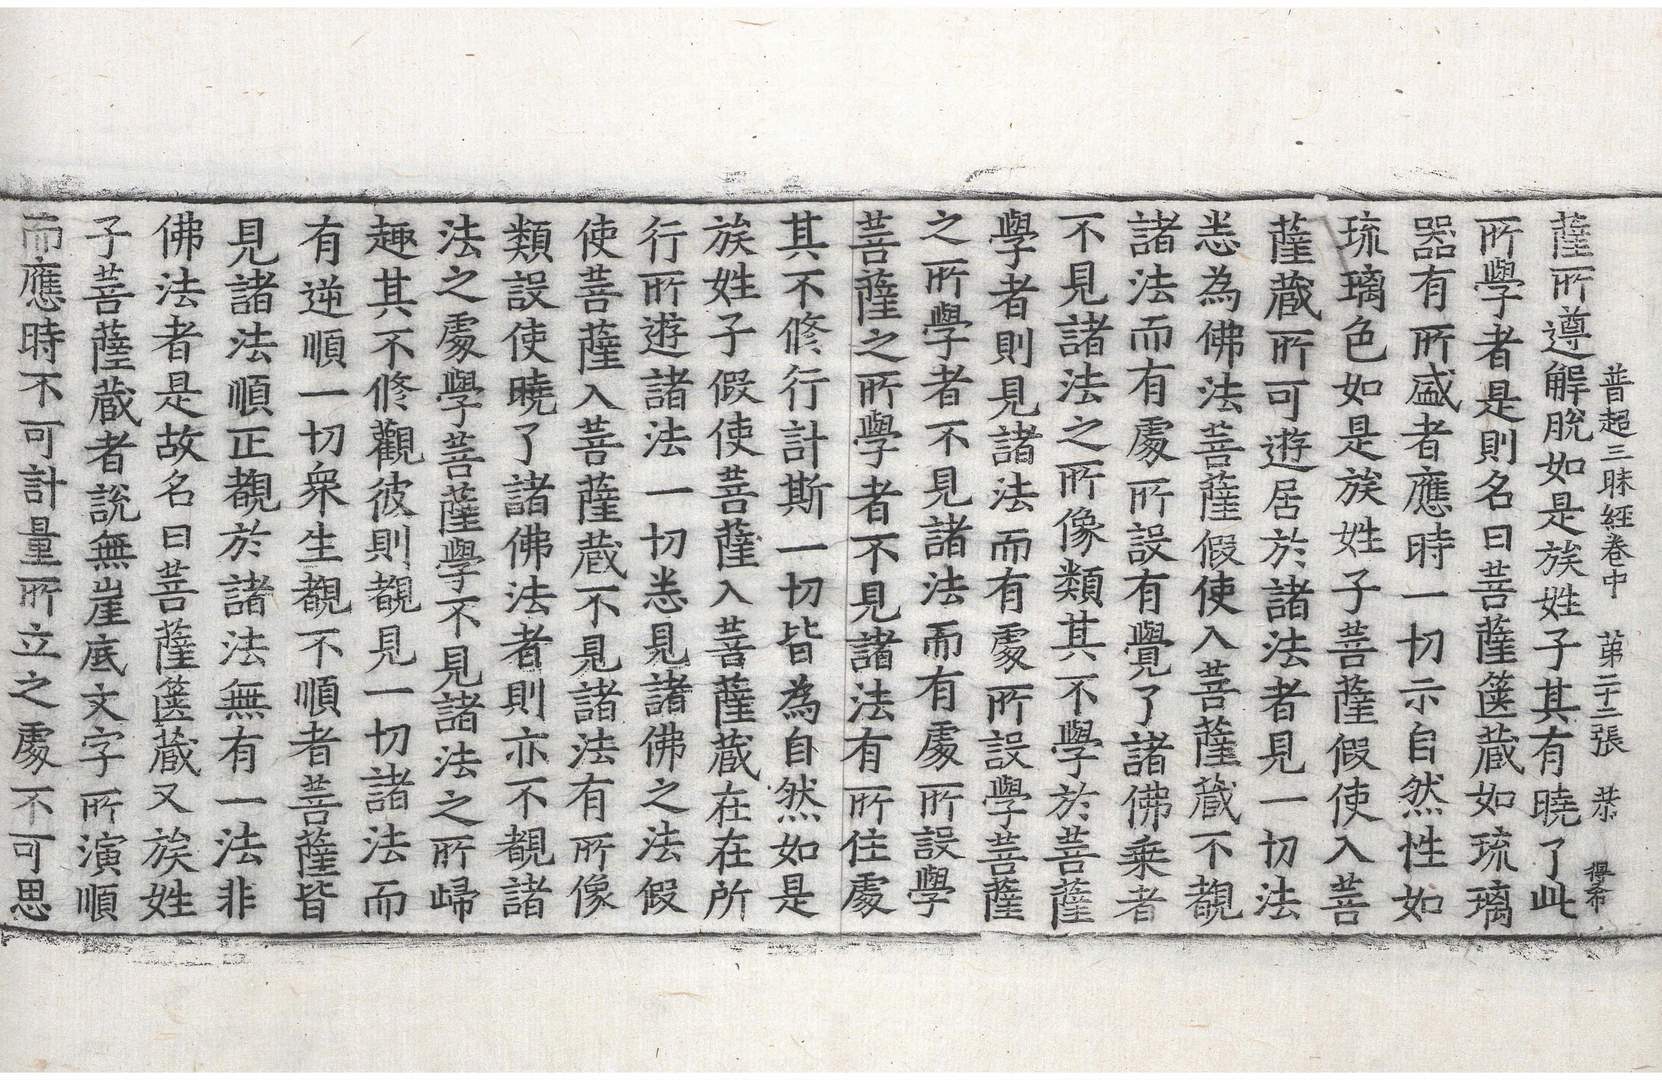 普超三昧經卷中 第二十二張 恭 得希
薩所遵解脫如是族姓子其有曉了此
所學者是則名曰菩薩篋藏如琉璃
器有所盛者應時一切示自然性如
琉璃色如是族姓子菩薩假使入菩
薩藏所可遊居於諸法者見一切法
悉為佛法菩薩假使入菩薩藏不覩
諸法而有處所設有覺了諸佛乘者
不見諸法之所像類其不學於菩薩
學者則見諸法而有處所設學菩薩
之所學者不見諸法而有處所設學
菩薩之所學者不見諸法有所住處
其不修行計斯一切皆為自然如是
族姓子假使菩薩入菩薩藏在在所
行所遊諸法一切悉見諸佛之法假
使菩薩入菩薩藏不見諸法有所像
類設使曉了諸佛法者則亦不覩諸
法之處學菩薩學不見諸法之所歸
趣其不修觀彼則覩見一切諸法而
有逆順一切衆生覩不順者菩薩皆
見諸法順正覩於諸法無有一法非
佛法者是故名曰菩薩篋藏又族姓
子菩薩藏者說無崖底文字所演順
而應時不可計量所立之處不可思